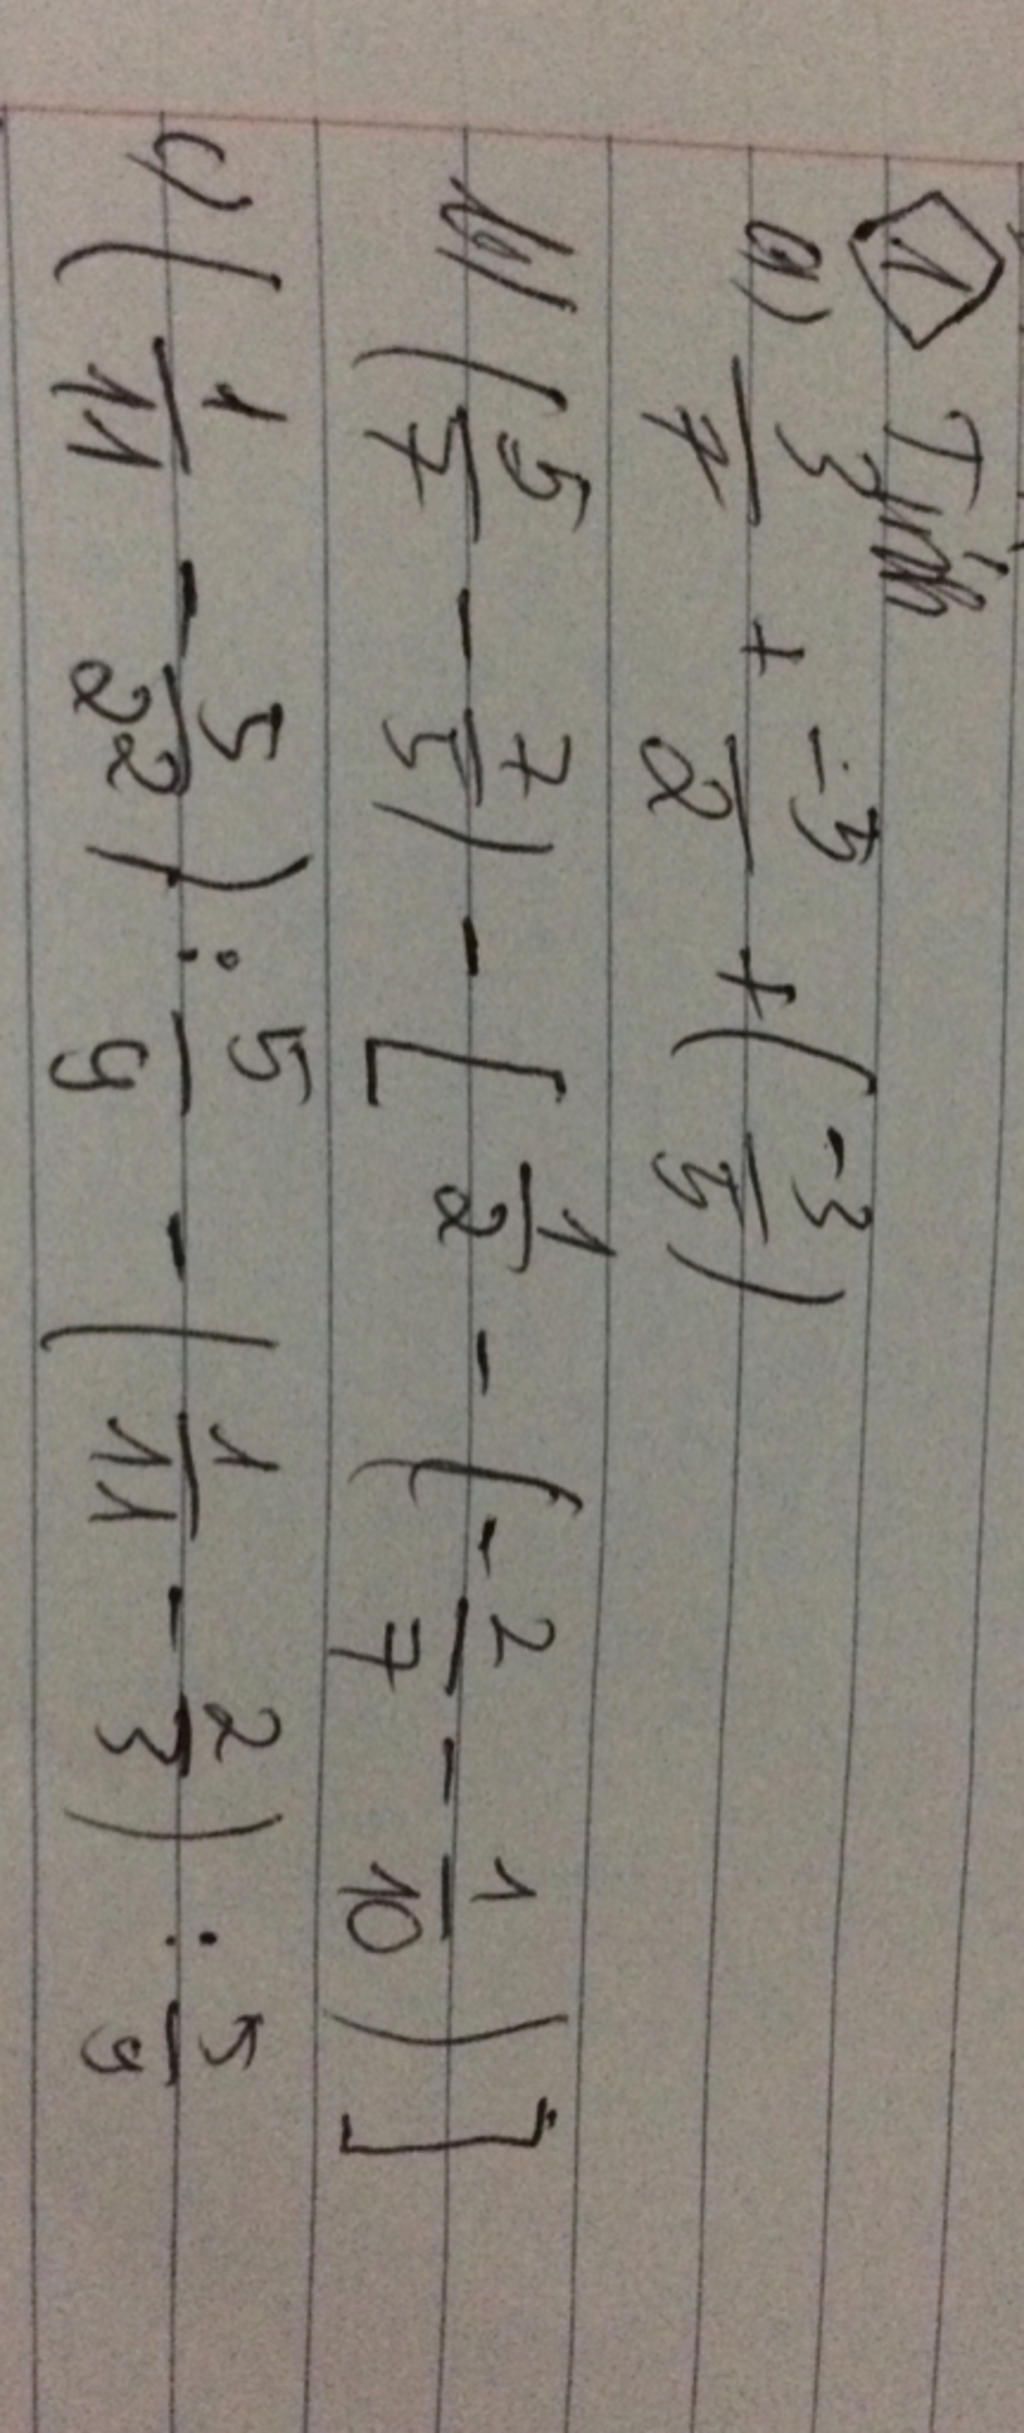 1 Tính
a) 3/7 + -5/2 + (-3/5)
b) (5/7 - 7/5) - [1/2 - (-2/7 - 1/10)]
c) (1/11 - 5/22) : 5/9 - (1/11 - 2/3) : 5/9